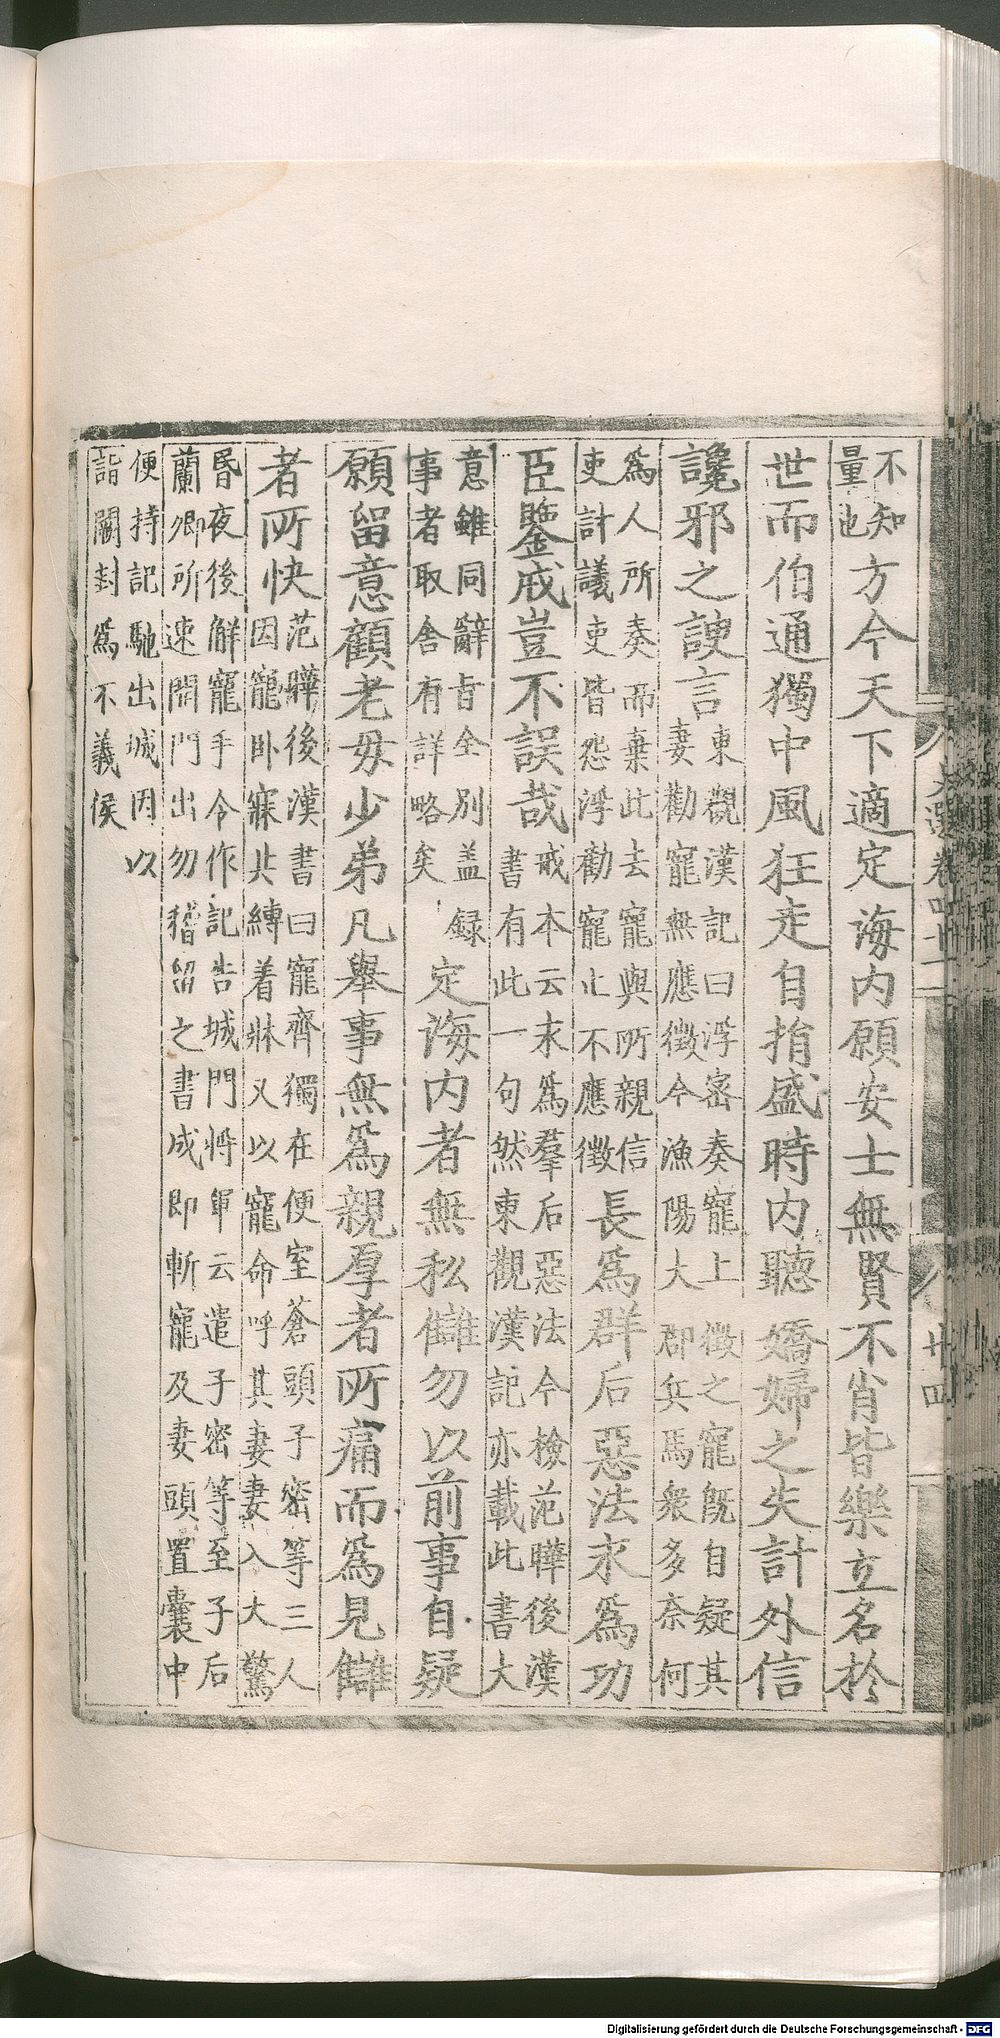 不知量也方今天下適定海内願安士無賢不肖皆樂立名於
世而伯通獨中風狂走自捐盛時内聽嬌婦之失計外信
讒邪之諛言東觀漢記曰浮密奏寵上徵之寵既自疑其妻勸寵無應徵今漁陽大郡兵馬衆多奈何
爲人所奏而棄此去寵與所親信吏計議吏皆怨浮勸寵止不應徵長爲群后惡法求爲功
臣鑒戒豈不誤哉戒本云末爲羣后惡法今檢范曄後漢書有此一句然東觀漢記亦載此書大
意雖同辭旨全别盖録事者取舍有詳略矣定海内者無私讎勿以前事自疑
願留意顧老母少弟凡舉事無爲親厚者所痛而爲見讎
者所快范曄後漢書曰寵齊獨在便室蒼頭子密等三人因寵卧寐共縛着牀又以寵命呼其妻妻入大驚
昏夜後解寵手令作記告城門將軍云遣子密等至子后蘭卿所速開門出勿稽留之書成即斬寵及妻頭置囊中
便持記馳出城因以詣闕封爲不義侯
文選卷四十一
廿四
Digitalisierung gefördert durch die Deutsche Forschungsgemeinschaft - DFG